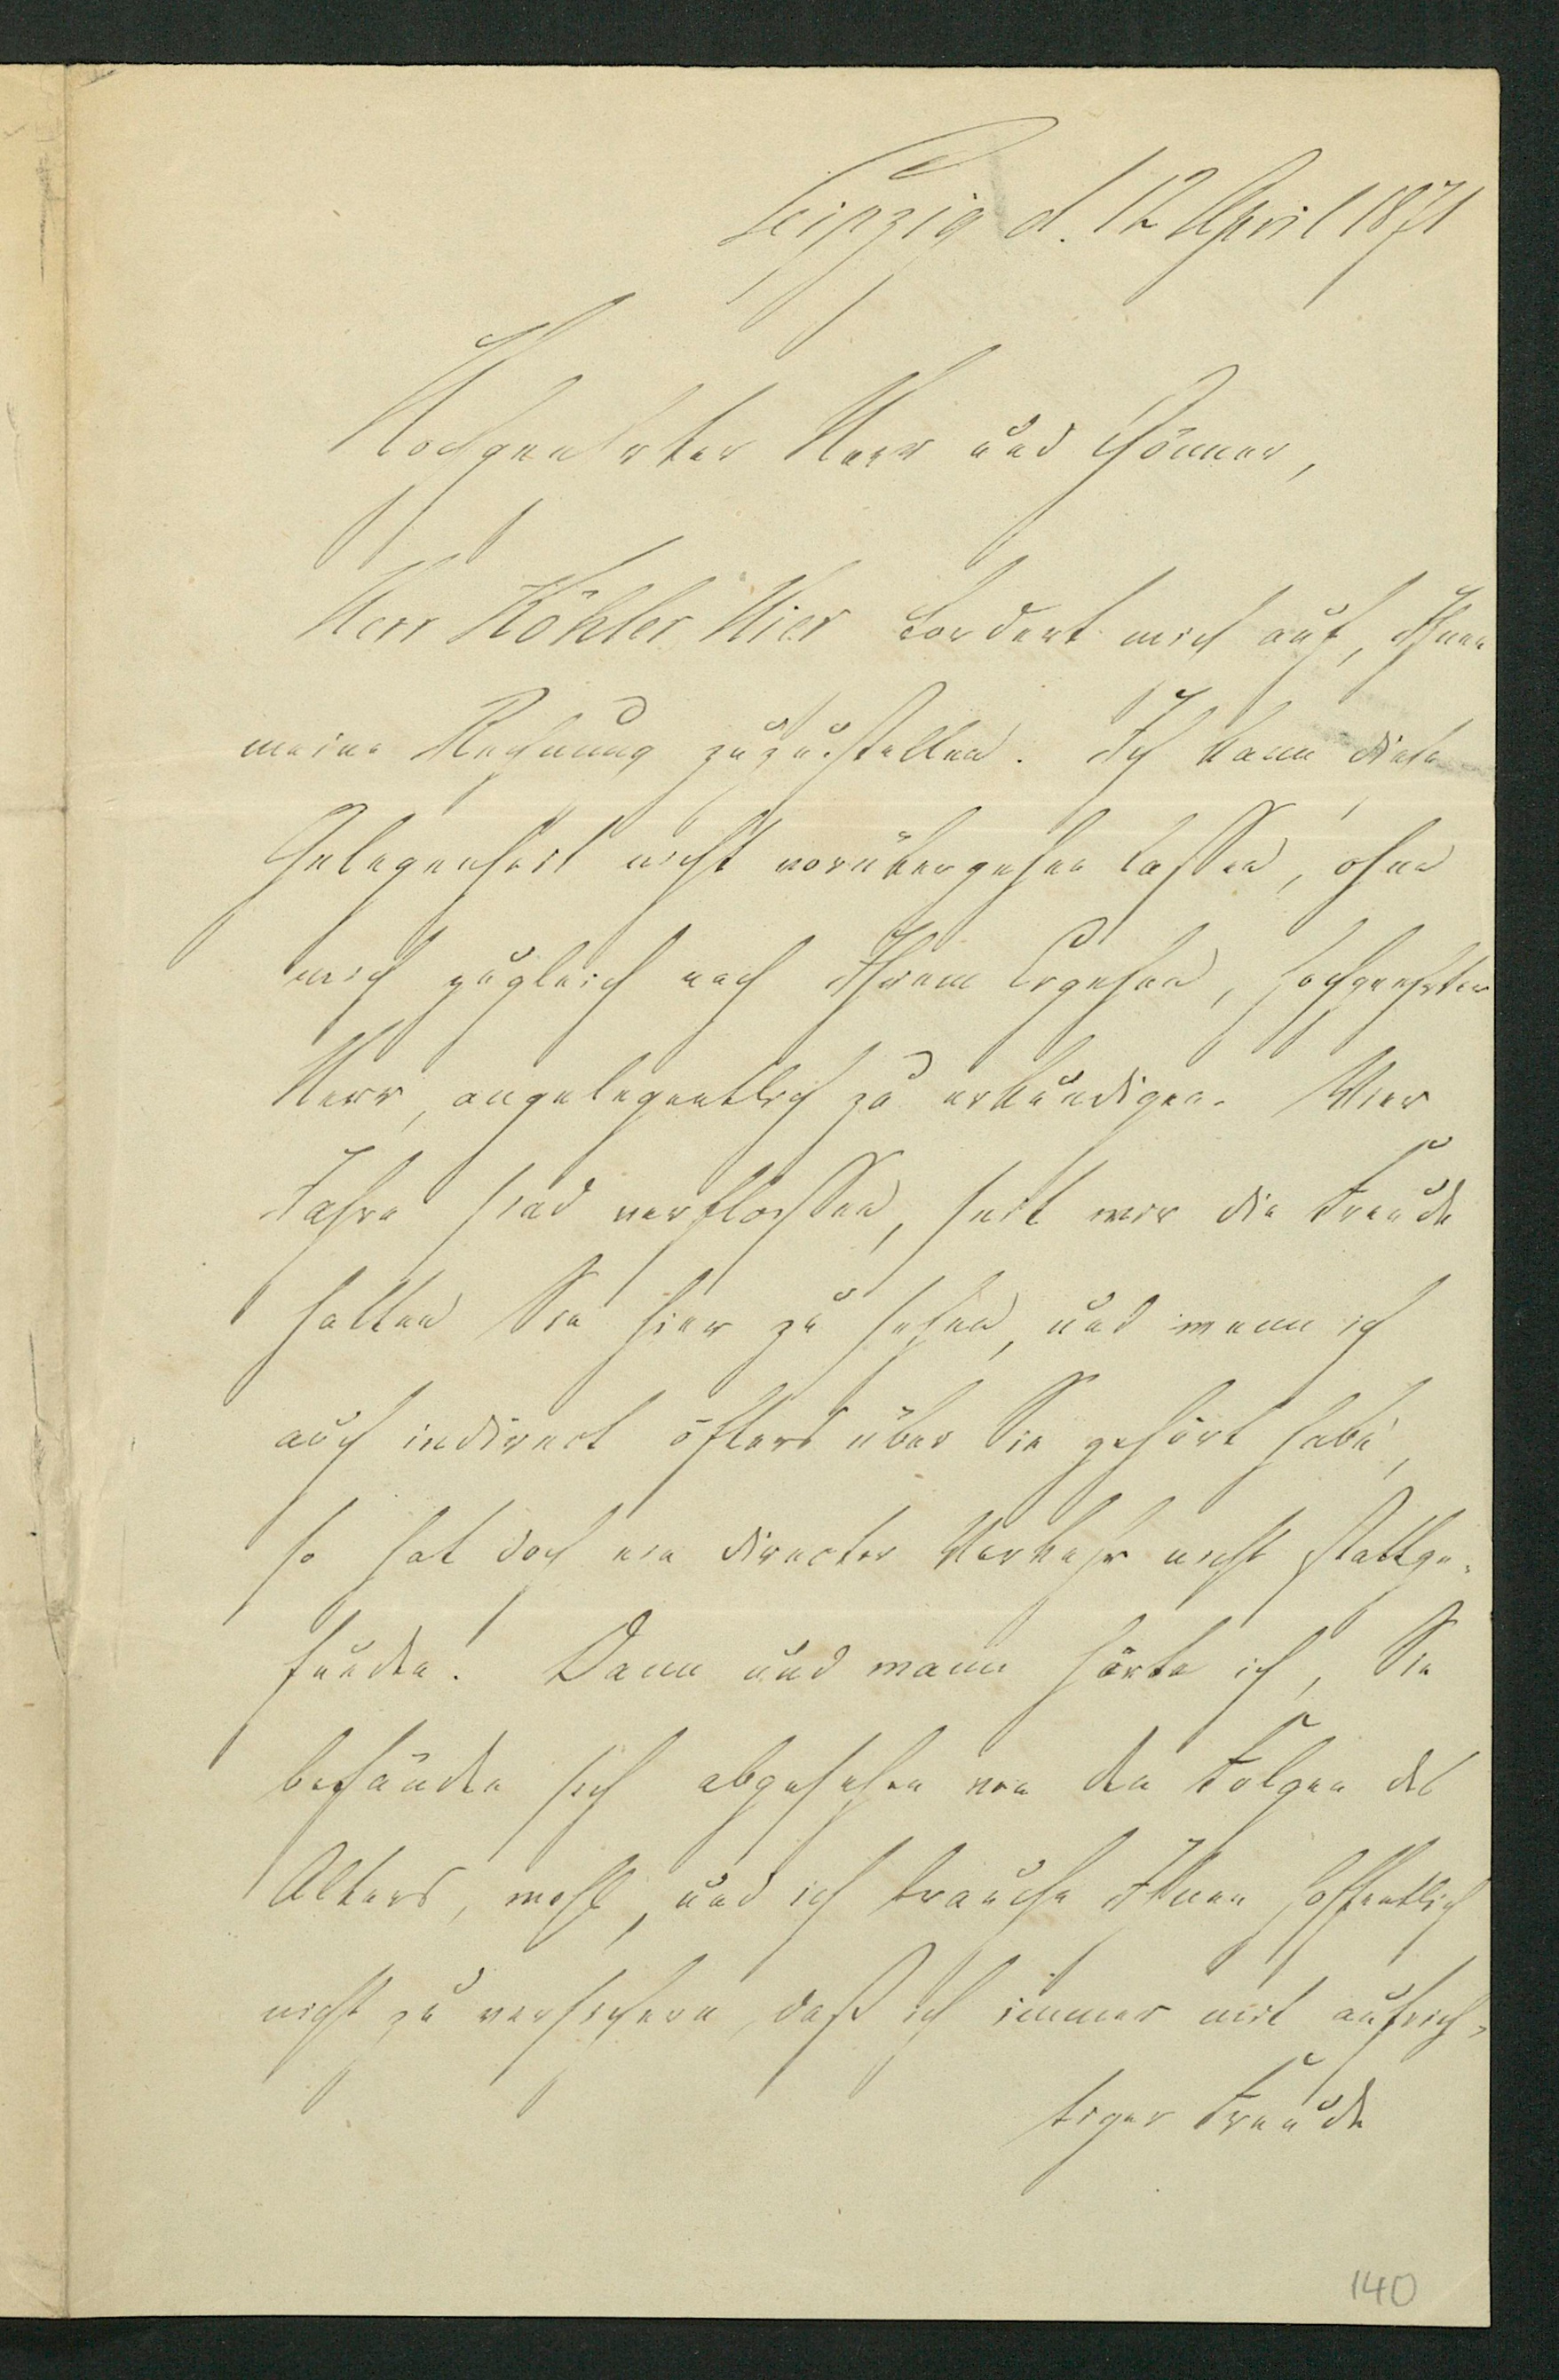 Leipzig d. 12 April 1871
Hochgeehrter Herr und Gönner,
Herr Köhler Hier fordert mich auf, Ihnen
meine Rechnung zuzustellen. Ich kann diese
Gelegenheit nicht vorübergehen lassen, ohne
mich zugleich nach Ihrem Ergehen, hochgeehrter
Herr, angelegentlich zu erkundigen. Vier
Jahre sind verflossen, seit wir die Freude
hatten Sie hier zu sehen, und wenn ich
auch indirect öfters über Sie gehört habe,
so hat doch ein directer Verkehr nicht stattge-
funden. Dann und wann hörte ich, Sie
befänden sich abgesehen von den Folgen des
Alters, wohl, und ich brauche Ihnen hoffentlich
nicht zu versichern, daß ich immer mit aufrich-
tiger Freude
140